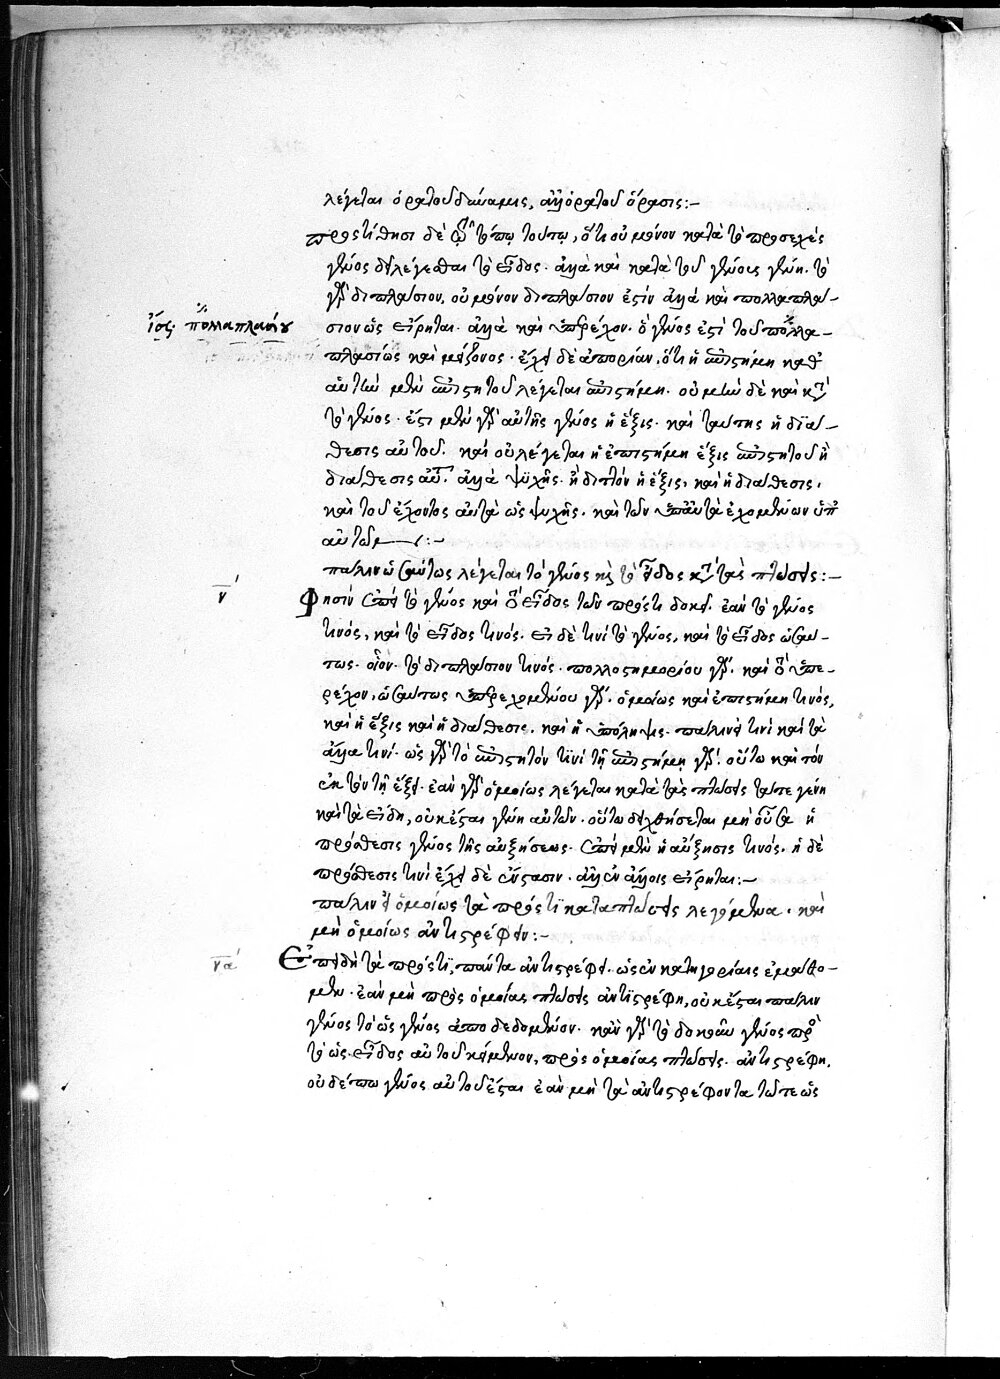 λέγεται ὁρατοῦ δύναμις, ἀλλ' ὁρατοῦ ὅρασις:-
προστίθησι δὲ τῷ τόπῳ τούτῳ, ὅτι οὐ μόνον κατὰ τὸ προσεχὲς
γένος δεῖ λέγεσθαι τὸ εἶδος. ἀλλὰ καὶ κατὰ τοῦ γένους γένη. τὸ
γὰρ διπλάσιον, οὐ μόνον διπλάσιον ἐστὶν ἀλλὰ καὶ πολλαπλα-
ἴσως πολλαπλασίου
σίον ὡς εἴρηται. ἀλλὰ καὶ ὑπερέχον. ὁ γένος ἐστὶ τοῦ πολλα-
πλασίως καὶ μείζονος. ἔχει δὲ ἀπορίαν, ὅτι ἡ ἐπιστήμη καθ'
αὑτὴν μὲν ἐπιστητοῦ λέγεται ἐπιστήμη. οὐ μὴν δὲ καὶ κατὰ
τὸ γένος. ἔστι μὲν γὰρ αὐτῆς γένος ἡ ἕξις. καὶ ταύτης ἡ διά-
θεσις αὐτοῦ. καὶ οὐ λέγεται ἡ ἐπιστήμη ἕξις ἐπιστητοῦ ἢ
διάθεσις αὐτοῦ. ἀλλὰ ψυχῆς. ἢ διττὸν ἡ ἕξις, καὶ ἡ διάθεσις.
καὶ τοῦ ἔχοντος αὐτὰ ὡς ψυχῆς. καὶ τῶν ἐχομένων ὑπ'
αὐτῶν:-
πάλιν ὡσαύτως λέγεται τὸ γένος καὶ τὸ εἶδος κατὰ τὰς πτώσεις:-
ν´
Φησὶν ἐπεὶ τὸ γένος καὶ τὸ εἶδος τῶν πρός τι δοκεῖ. ἐὰν τὸ γένος
τινός, καὶ τὸ εἶδος τινός. εἰ δὲ τινὶ τὸ γένος, καὶ τὸ εἶδος ὡσαύ-
τως. οἷον. τὸ διπλάσιον τινός. πολλοστημορίου γάρ. καὶ τὸ ὑπε-
ρέχον, ὡσαύτως ὑπερεχομένου γάρ. ὁμοίως καὶ ἐπιστήμη τινός,
καὶ ἡ ἕξις καὶ ἡ διάθεσις. καὶ ἡ ὑπόληψις. πάλιν τινὶ καὶ τὰ
ἄλλα τινί. ὡς γὰρ τὸ ἐπιστητὸν τινὶ τῇ ἐπιστήμῃ γάρ. οὕτω καὶ τὸν
ἑκτὸν τῇ ἕξει. ἐὰν γὰρ ὁμοίως λέγεται κατὰ τὰς πτώσεις τά τε γένη
καὶ τὰ εἴδη, οὐκ ἔσται γένη αὐτῶν. οὕτω δειχθήσεται μὴ οὖσα ἡ
πρόσθεσις γένος τῆς αὐξήσεως. ἐπεὶ μὲν ἡ αὔξησις τινός. ἡ δὲ
πρόσθεσις τινί ἔχει δὲ ἔνστασιν. ἀλλ' ἐν ἄλλοις εἴρηται:-
πάλιν εἰ ὁμοίως τὰ πρός τι κατὰ πτώσεις λεγόμενα. καὶ
μὴ ὁμοίως ἀντιστρέφειν:-
να´
Ἐπειδὴ τὰ πρός τι, πάντα ἀντιστρέφει. ὡς ἐν κατηγορίαις ἐμάθο-
μεν. ἐὰν μὴ πρὸς ὁμοίας πτώσεις ἀντιστρέφῃ, οὐκ ἔσται πάλιν
γένος τὸ ὡς γένος ἀποδεδομένον. κἂν γὰρ τὸ δοκοῦν γένος πρὸς
τὸ ὡς εἶδος αὐτοῦ κείμενον, πρὸς ὁμοίας πτώσεις. ἀντιστρέφῃ.
οὐδέπω γένος αὐτοῦ ἔσται ἐὰν μὴ τὰ ἀντιστρέφοντα τῷ τε ὡς